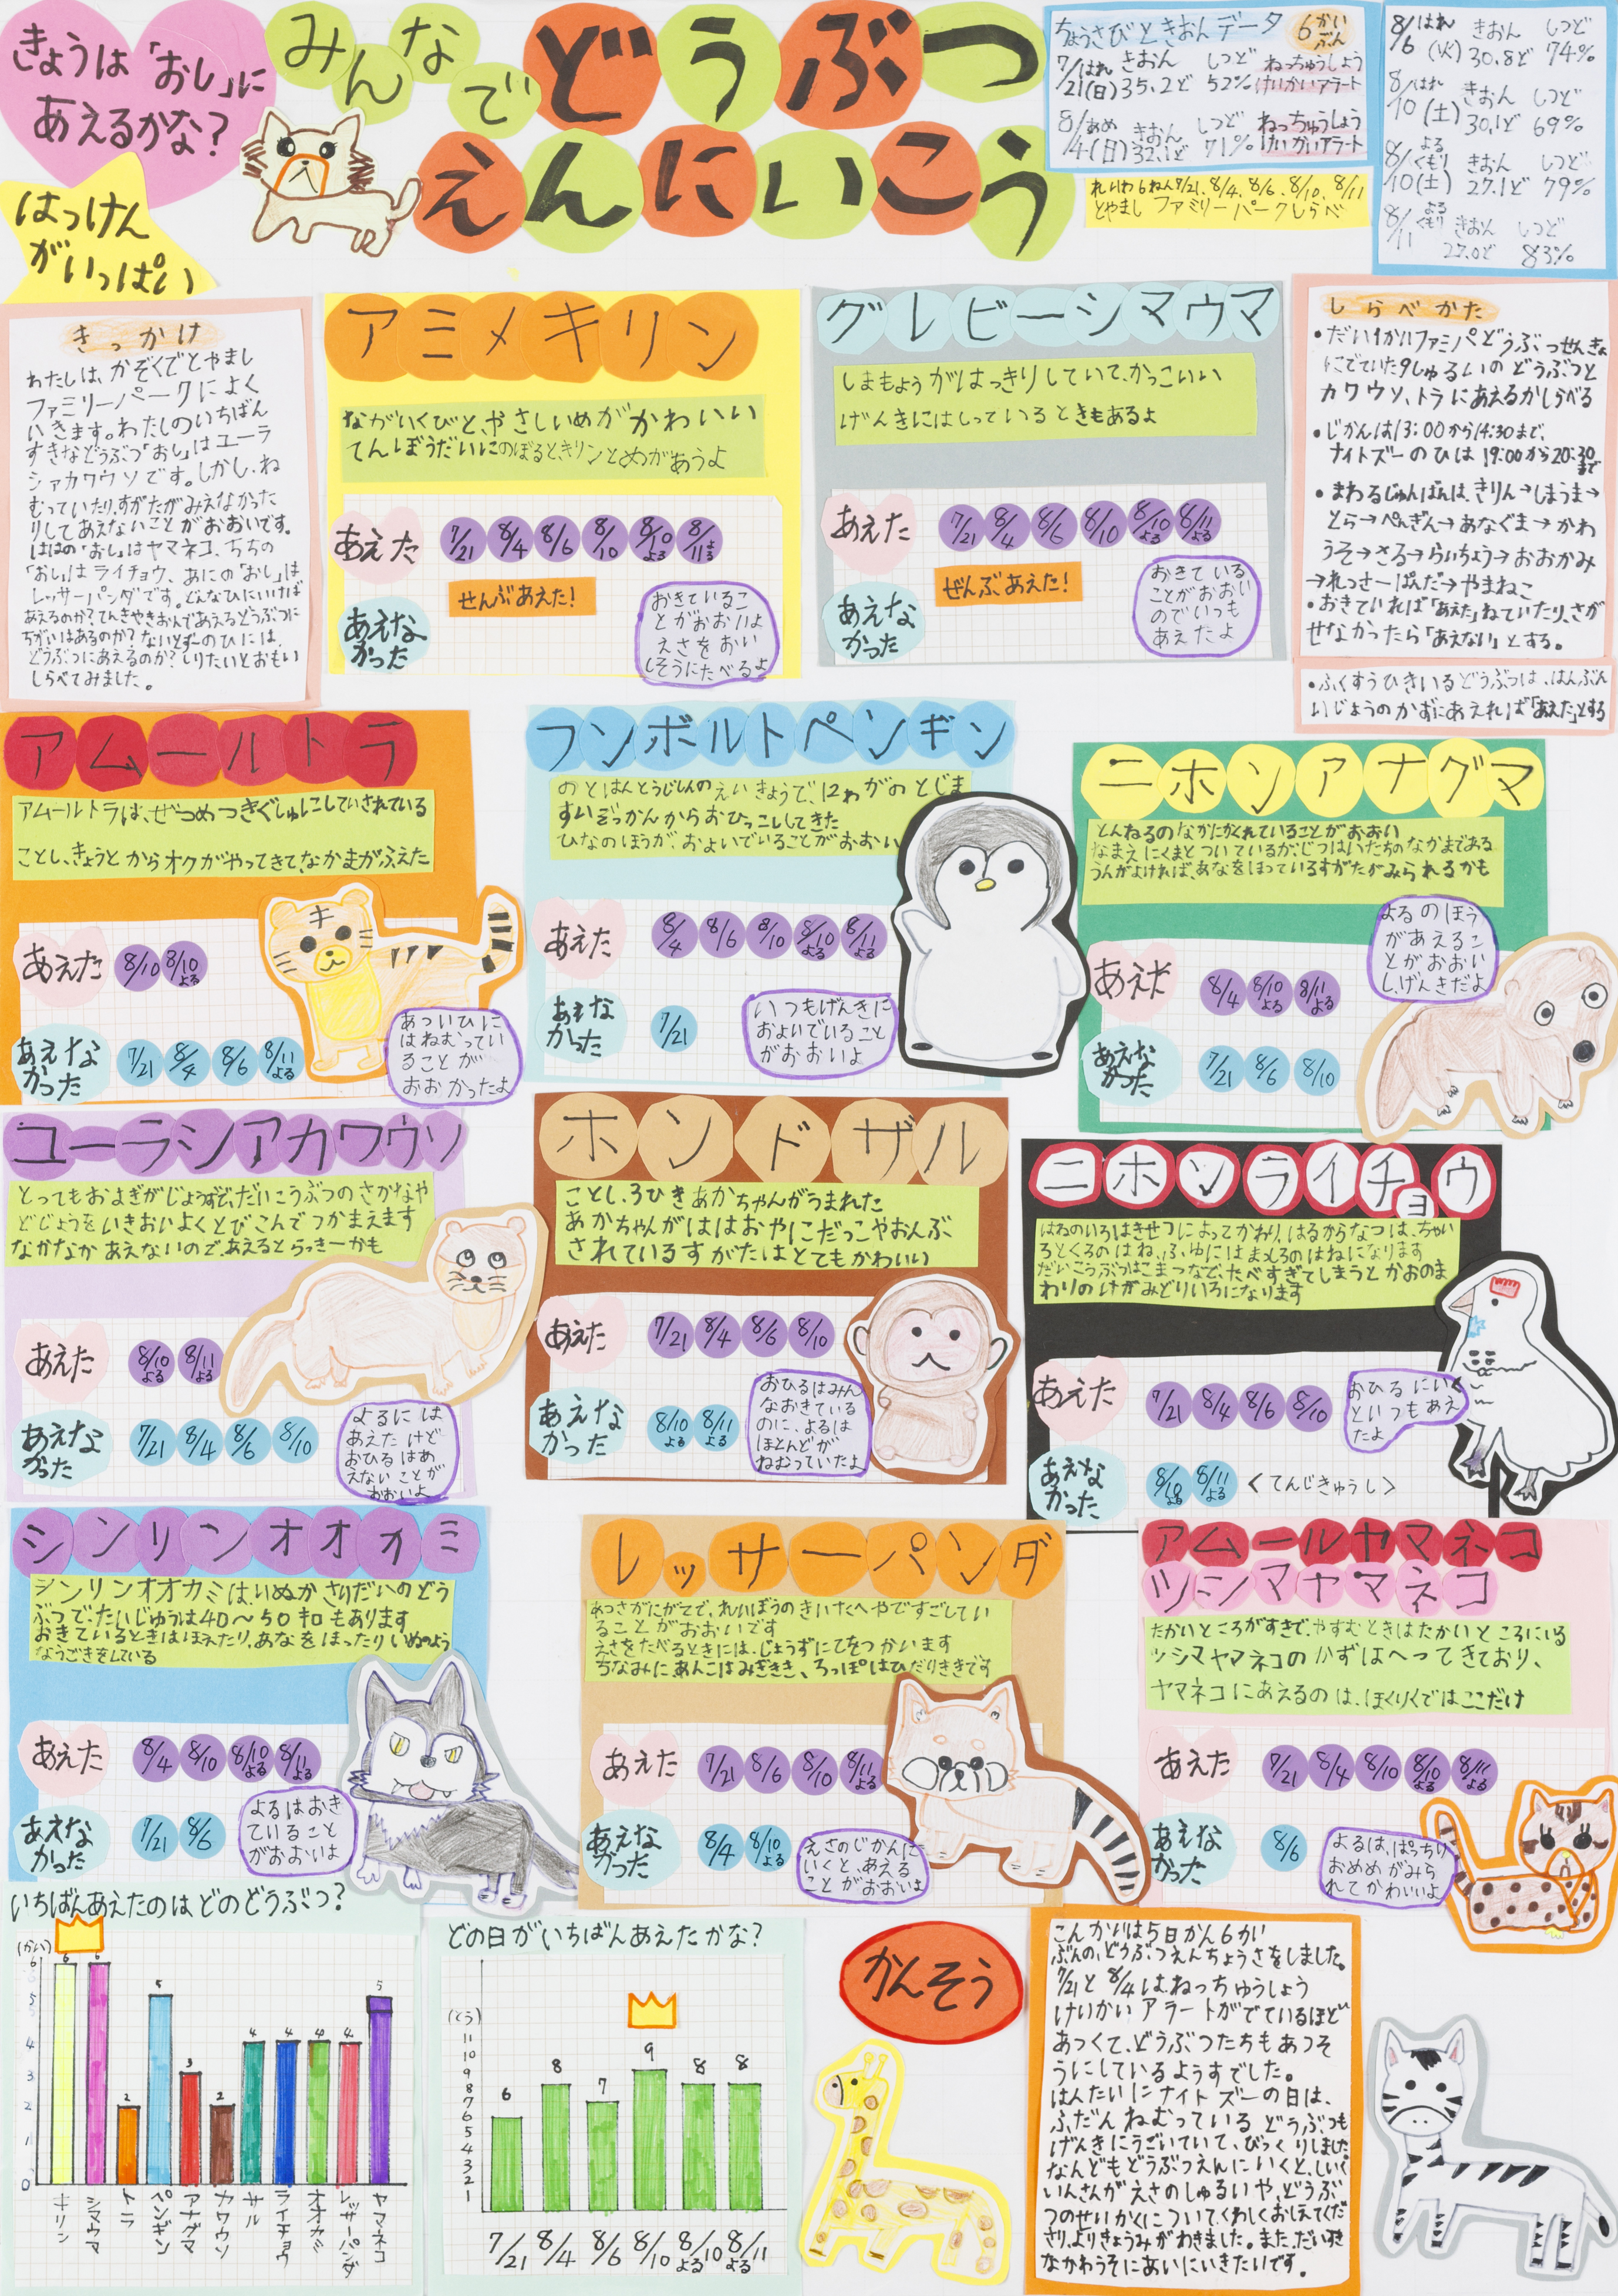 きょうは「おし」に
あえるかな？
みんなで どうぶつ
えんにいこう
はっけん
がいっぱい
ちょうさびときおんデータ 6かいぶん
7/21(日) はれ きおん 35.2ど しつど 52% ねっちゅうしょうけいかいアラート
8/4(日) あめ きおん 32.1ど しつど 71% ねっちゅうしょうけいかいアラート
8/6(火) はれ きおん 30.8ど しつど 74%
8/10(土) はれ きおん 30.1ど しつど 69%
8/10(土) よる くもり きおん 27.1ど しつど 79%
8/11 よる くもり きおん 27.0ど しつど 83%
れいわ6ねん7/21、8/4、8/6、8/10、8/11
とやまし ファミリーパークしらべ
きっかけ
わたしは、かぞくでとやまし
ファミリーパークによく
いきます。わたしのいちばん
すきなどうぶつ「おし」はユーラ
シアカワウソです。しかし、ね
むっていたり、すがたがみえなかった
りしてあえないことがおおいです。
ははの「おし」はヤマネコ、ちちの
「おし」はライチョウ、あにの「おし」は
レッサーパンダです。どんなひにいけば
あえるのか？てんきやきおんであえるどうぶつに
ちがいはあるのか？ないとずーのひには、
どうぶつにあえるのか？しりたいとおもい
しらべてみました。
アミメキリン
ながいくびと、やさしいめがかわいい
てんぼうだいにのぼると、きりんとめがあうよ
あえた 7/21 8/4 8/6 8/10 8/10よる 8/11よる
ぜんぶあえた！
あえなかった
おきているこ
とがおおいよ
えさをおい
しそうにたべるよ
グレビーシマウマ
しまもようがはっきりしていて、かっこいい
げんきにはしっているときもあるよ
あえた 7/21 8/4 8/6 8/10 8/10よる 8/11よる
ぜんぶあえた！
あえなかった
おきている
ことがおおい
のでいつも
あえたよ
しらべかた
・だい1かいファミパどうぶつせんきょ
にでていた9しゅるいのどうぶつと
カワウソ、トラにあえるかしらべる
・じかんは13：00から14：30まで、
ナイトズーのひは19：00から20：30まで
・まわるじゅんばんは、きりん→しまうま→
とら→ぺんぎん→あなぐま→かわ
うそ→さる→らいちょう→おおかみ
→れっさーぱんだ→やまねこ
・おきていれば「あえた」ねていたり、さが
せなかったら「あえない」とする。
・ふくすうひきいるどうぶつは、はんぶん
いじょうのかずにあえれば「あえた」とする
アムールトラ
アムールトラは、ぜつめつきぐしゅにしていされている
ことし、きょうとからオクがやってきて、なかまがふえた
あえた 8/10 8/10よる
あえなかった 7/21 8/4 8/6 8/11よる
あついひに
はねむってい
ることが
おおかったよ
フンボルトペンギン
のとはんとうじしんのえいきょうで、12わがのとじま
すいぞっかんからおひっこししてきた
ひなのほうが、およいでいることがおおい
あえた 8/4 8/6 8/10 8/10よる 8/11よる
あえなかった 7/21
いつもげんきに
およいでいること
がおおいよ
ニホンアナグマ
とんねるのなかにかくれていることがおおい
なまえにくまとついているが、じつはいたちのなかまである
うんがよければ、あなをほっているすがたがみられるかも
あえた 8/4 8/10よる 8/11よる
あえなかった 7/21 8/6 8/10
よるのほう
があえるこ
とがおおい
し、げんきだよ
ユーラシアカワウソ
とってもおよぎがじょうずで、だいこうぶつのさかなや
どじょうをいきおいよくとびこんでつかまえます
なかなかあえないので、あえるとらっきーかも
あえた 8/10よる 8/11よる
あえなかった 7/21 8/4 8/6 8/10
よるには
あえたけど
おひるはあ
えないことが
おおいよ
ホンドザル
ことし、3びきあかちゃんがうまれた
あかちゃんがははおやにだっこやおんぶ
されているすがたはとてもかわいい
あえた 7/21 8/4 8/6 8/10
あえなかった 8/10よる 8/11よる
おひるはみん
なおきている
のに、よるは
ほとんどが
ねむっていたよ
ニホンライチョウ
はねのいろはきせつによってかわり、はるからなつは、ちゃい
ろとくろのはね、ふゆにはまっしろのはねになります
だいこうぶつはこまつなで、たべすぎてしまうとかおのま
わりのけがみどりいろになります
あえた 7/21 8/4 8/6 8/10
あえなかった 8/10よる 8/11よる <てんじきゅうし>
おひるにいく
といつもあえ
たよ
シンリンオオカミ
シンリンオオカミは、いぬかさいだいのどう
ぶつで、たいじゅうは40～50キロもあります
おきているときはほえたり、あなをほったりいぬのよう
なうごきをしている
あえた 8/4 8/10 8/10よる 8/11よる
あえなかった 7/21 8/6
よるはおき
ていること
がおおいよ
レッサーパンダ
あつさがにがてで、れいぼうのきいたへやですごしてい
ることがおおいです
えさをたべるときには、じょうずにてをつかいます
ちなみに、あんこはみぎきき、ろっぽはひだりききです
あえた 7/21 8/6 8/10 8/11よる
あえなかった 8/4 8/10よる
えさのじかんに
いくと、あえる
ことがおおいよ
アムールヤマネコ
ツシマヤマネコ
たかいところがすきで、やすむときはたかいところにいる
ツシマヤマネコのかずはへってきており、
ヤマネコにあえるのは、ほくりくではここだけ
あえた 7/21 8/4 8/10 8/10よる 8/11よる
あえなかった 8/6
よるは、ぱっちり
おめめがみら
れてかわいいよ
いちばんあえたのはどのどうぶつ？
(かい)
6 6 2 5 3 2 4 4 4 4 5
6
5
4
3
2
1
0
キリン シマウマ トラ ペンギン アナグマ カワウソ サル ライチョウ オオカミ レッサーパンダ ヤマネコ
どの日がいちばんあえたかな？
(とう)
6 8 7 9 8 8
11
10
9
8
7
6
5
4
3
2
1
7/21 8/4 8/6 8/10 8/10よる 8/11よる
かんそう
こんかいは5日かん6かい
ぶんの、どうぶつえんちょうさをしました。
7/21と8/4は、ねっちゅうしょう
けいかいアラートがでているほど
あつくて、どうぶつたちもあつそ
うにしているようすでした。
はんたいにナイトズーの日は、
ふだんねむっているどうぶつも
げんきにうごいていて、びっくりしました。
なんどもどうぶつえんにいくと、しいく
いんさんがえさのしゅるいや、どうぶ
つのせいかくについてくわしくおしえてくだ
さり、よりきょうみがわきました。また、だいすき
なかわうそにあいにいきたいです。